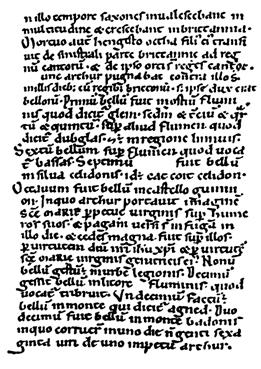 n illo tempore saxones inualescebant in
multitudine & crescebant inbrittannia.
Mortuo aut̄ hengisto octha fili' ei' transi
uit de sinistrali parte brittannie ad reg
nū cantorū. & de ipso orti reges cantor̄.
unc arthur pugnabat contra illos
inillis dieb; cū regib; brittonū. s; ipse dux erat
bellorū. Primū bellū fuit inostiū flumi
nis quod dicit̄ glein. scd̄m & t̄ciū & qr̄
tū & quintū. sup̄ aliud flumen quod
dicit̄ dubglas. & ē inregione linnuis.
Sextū bellum sup̄ flumen quod uoca
t̄ bassas. Septimū fuit bellū
insilua celidonis. id ē cat coit celidon.
Octauum fuit bellū incastello guinni
on. Inquo arthur portauit imaginē
scē mariē p̄petue uirginis sup̄ hume
ros suos. & pagani uersi s̄ in fugā in
illo die. & cedes magna fuit sup̄ illos.
p̄ uirtutem dn̄i nr̄i ihū xp̄i & p̄ uirtutē
scē mariē uirginis genitricis ei'. Nonū
bellū gestū ē inurbe legionis. Decimū
gessit bellū inlitore fluminis quod
uocat̄ tribruit. Undecimū factū ē
bellū inmonte qui dicit̄ agned. Duo
decimū fuit bellū in monte badonis
inquo corruer̄ inuno die nōgenti sexa
ginta uiri de uno impetu arthur.